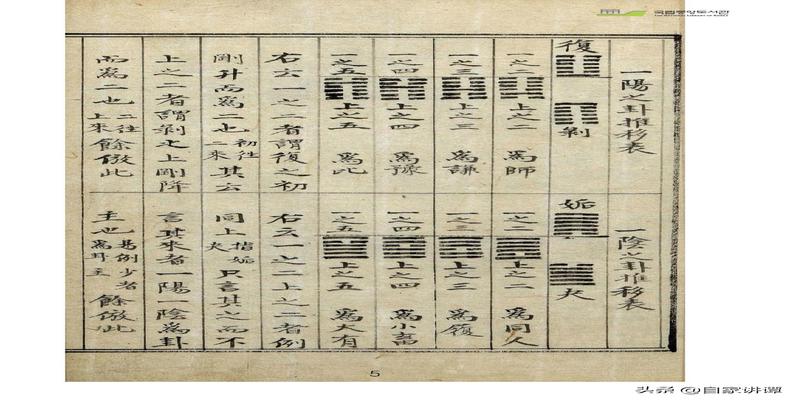 국립중앙도서관
一陽之卦推移表
復
剝
一之二 上之二 爲師
一之三 上之三 爲謙
一之四 上之四 爲豫
一之五 上之五 爲比
右云一之二者謂復之初
剛升而爲二也初往二來其云
上之二者謂剝之上剛降
而爲二也二往上來餘倣此
一陰之卦推移表
姤
夬
一之二 上之二 爲同人
一之三 上之三 爲履
一之四 上之四 爲小畜
一之五 上之五 爲大有
右云一之二上之二者例
同上指姤夬只言其之而不
言其來者一陽一陰爲卦
主也易例少者爲卦主餘倣此
5
头条 @自家讲谭